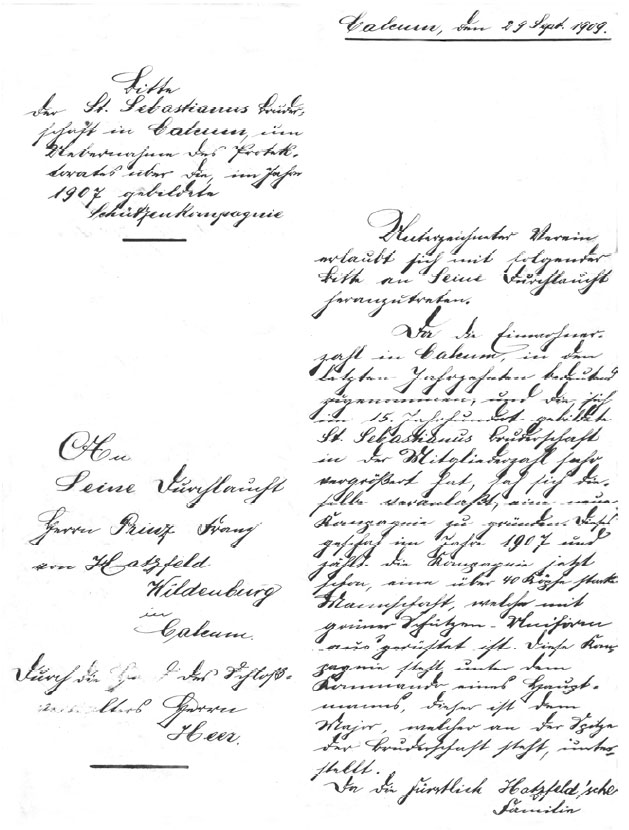 Calcum, den 29 Sept. 1909.
Bitte
der St. Sebastianus Bruder-
schaft in Calcum, um
Uebernahme des Protek-
torates über die, im Jahre
1907 gebildete
Schützenkompagnie
An
Seine Durchlaucht
Herrn Prinz Franz
von Hatzfeld
Wildenburg
in
Calcum.
Durch die des Schloß-
Herrn
Heer.
Unterzeichneter Verein
erlaubt sich mit folgender
Bitte an Seine Durchlaucht
heranzutreten.
Da die Einwohner-
zahl in Calcum, in den
letzten Jahrzehnten bedeutend
zugenommen, und die, sich
im 15. Jahrhundert gebildete
St. Sebastianus Bruderschaft
in der Mitgliederzahl sehr
vergrößert hat, hat sich die-
selbe veranlaßt, eine neue
Kompagnie zu gründen. Dieses
geschah im Jahre 1907 und
zählt die Kompagnie jetzt
schon, eine über 40 Köpfe starke
Mannschaft, welche mit
grüner Schützen-Uniform
ausgerüstet ist. Diese Kom-
pagnie steht unter dem
Kommando eines Haupt-
manns, dieser ist dem
Major, welcher an der Spitze
der Bruderschaft steht, unter-
stellt.
Da die fürstlich Hatzfeld'sche
Familie